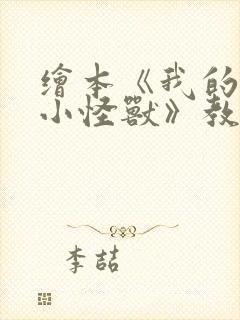 繪本《我的
小怪獸》教
李喆